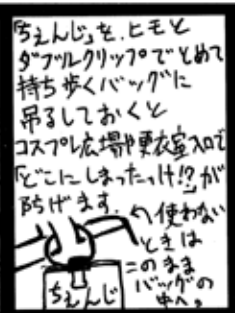 「ちぇんじ」を、ヒモと
ダブルクリップでとめて
持ち歩くバッグに
吊るしておくと
コスプレ広場や更衣室入口で
「どこにしまったっけ!?」が
防げます。
使わない
ときは
このまま
バッグの
中へ。
ちぇんじ